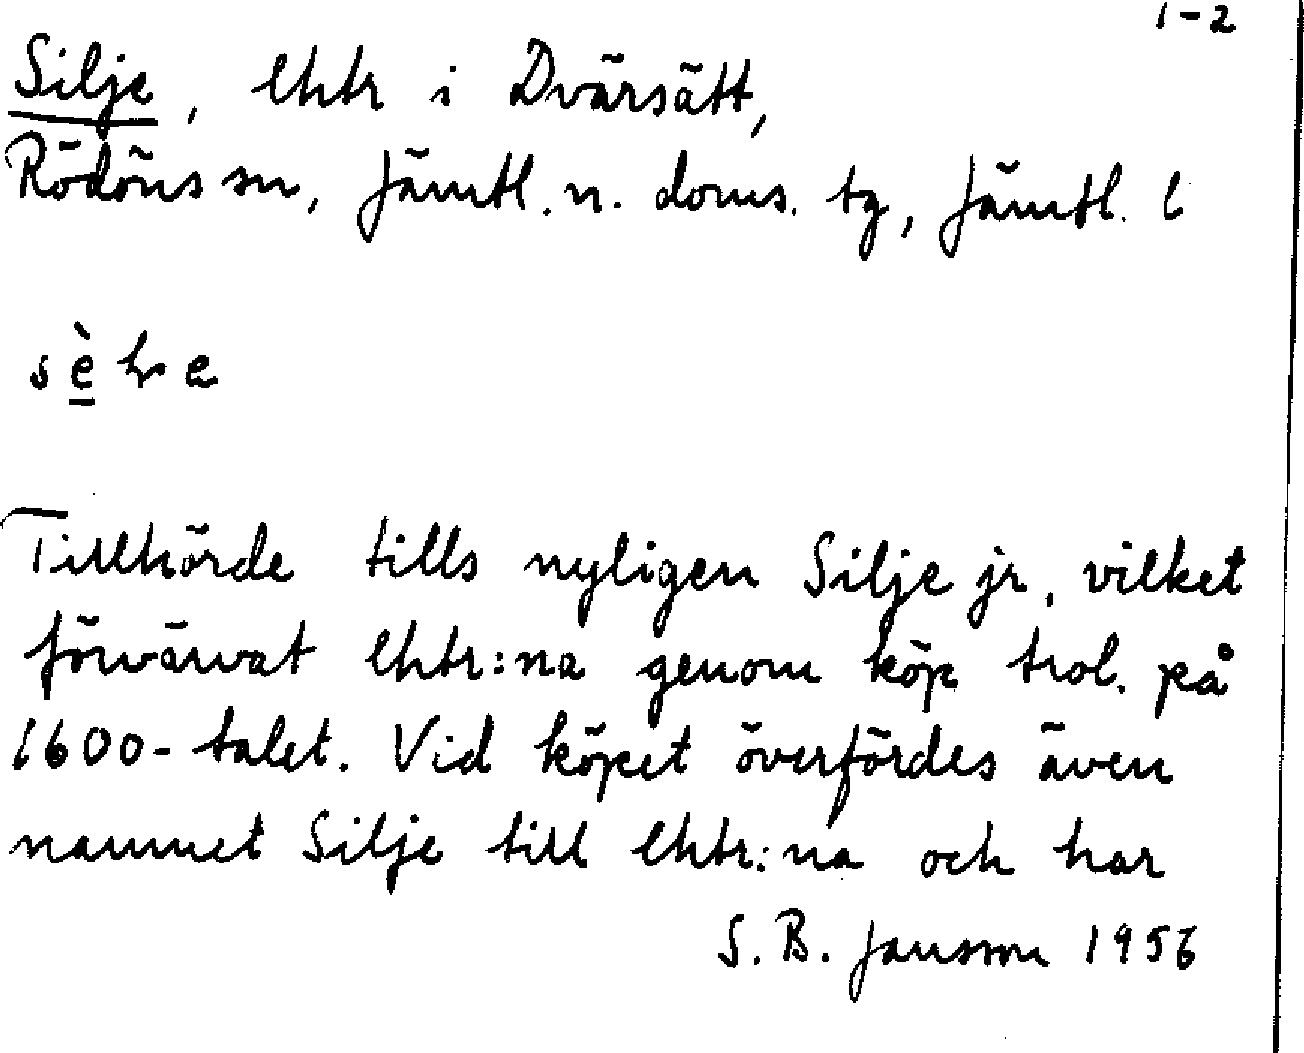 1-2
Silje, lhtr i Dvärsätt,
Rödöns sn, Jämtl. n. doms. tg, Jämtl. l
Tillhörde tills nyligen Silje jr, vilket
förvärvat lhtr:na genom köp trol. på
1600-talet. Vid köpet överfördes även
namnet Silje till lhtr:na och har
S. B. Jansson 1956